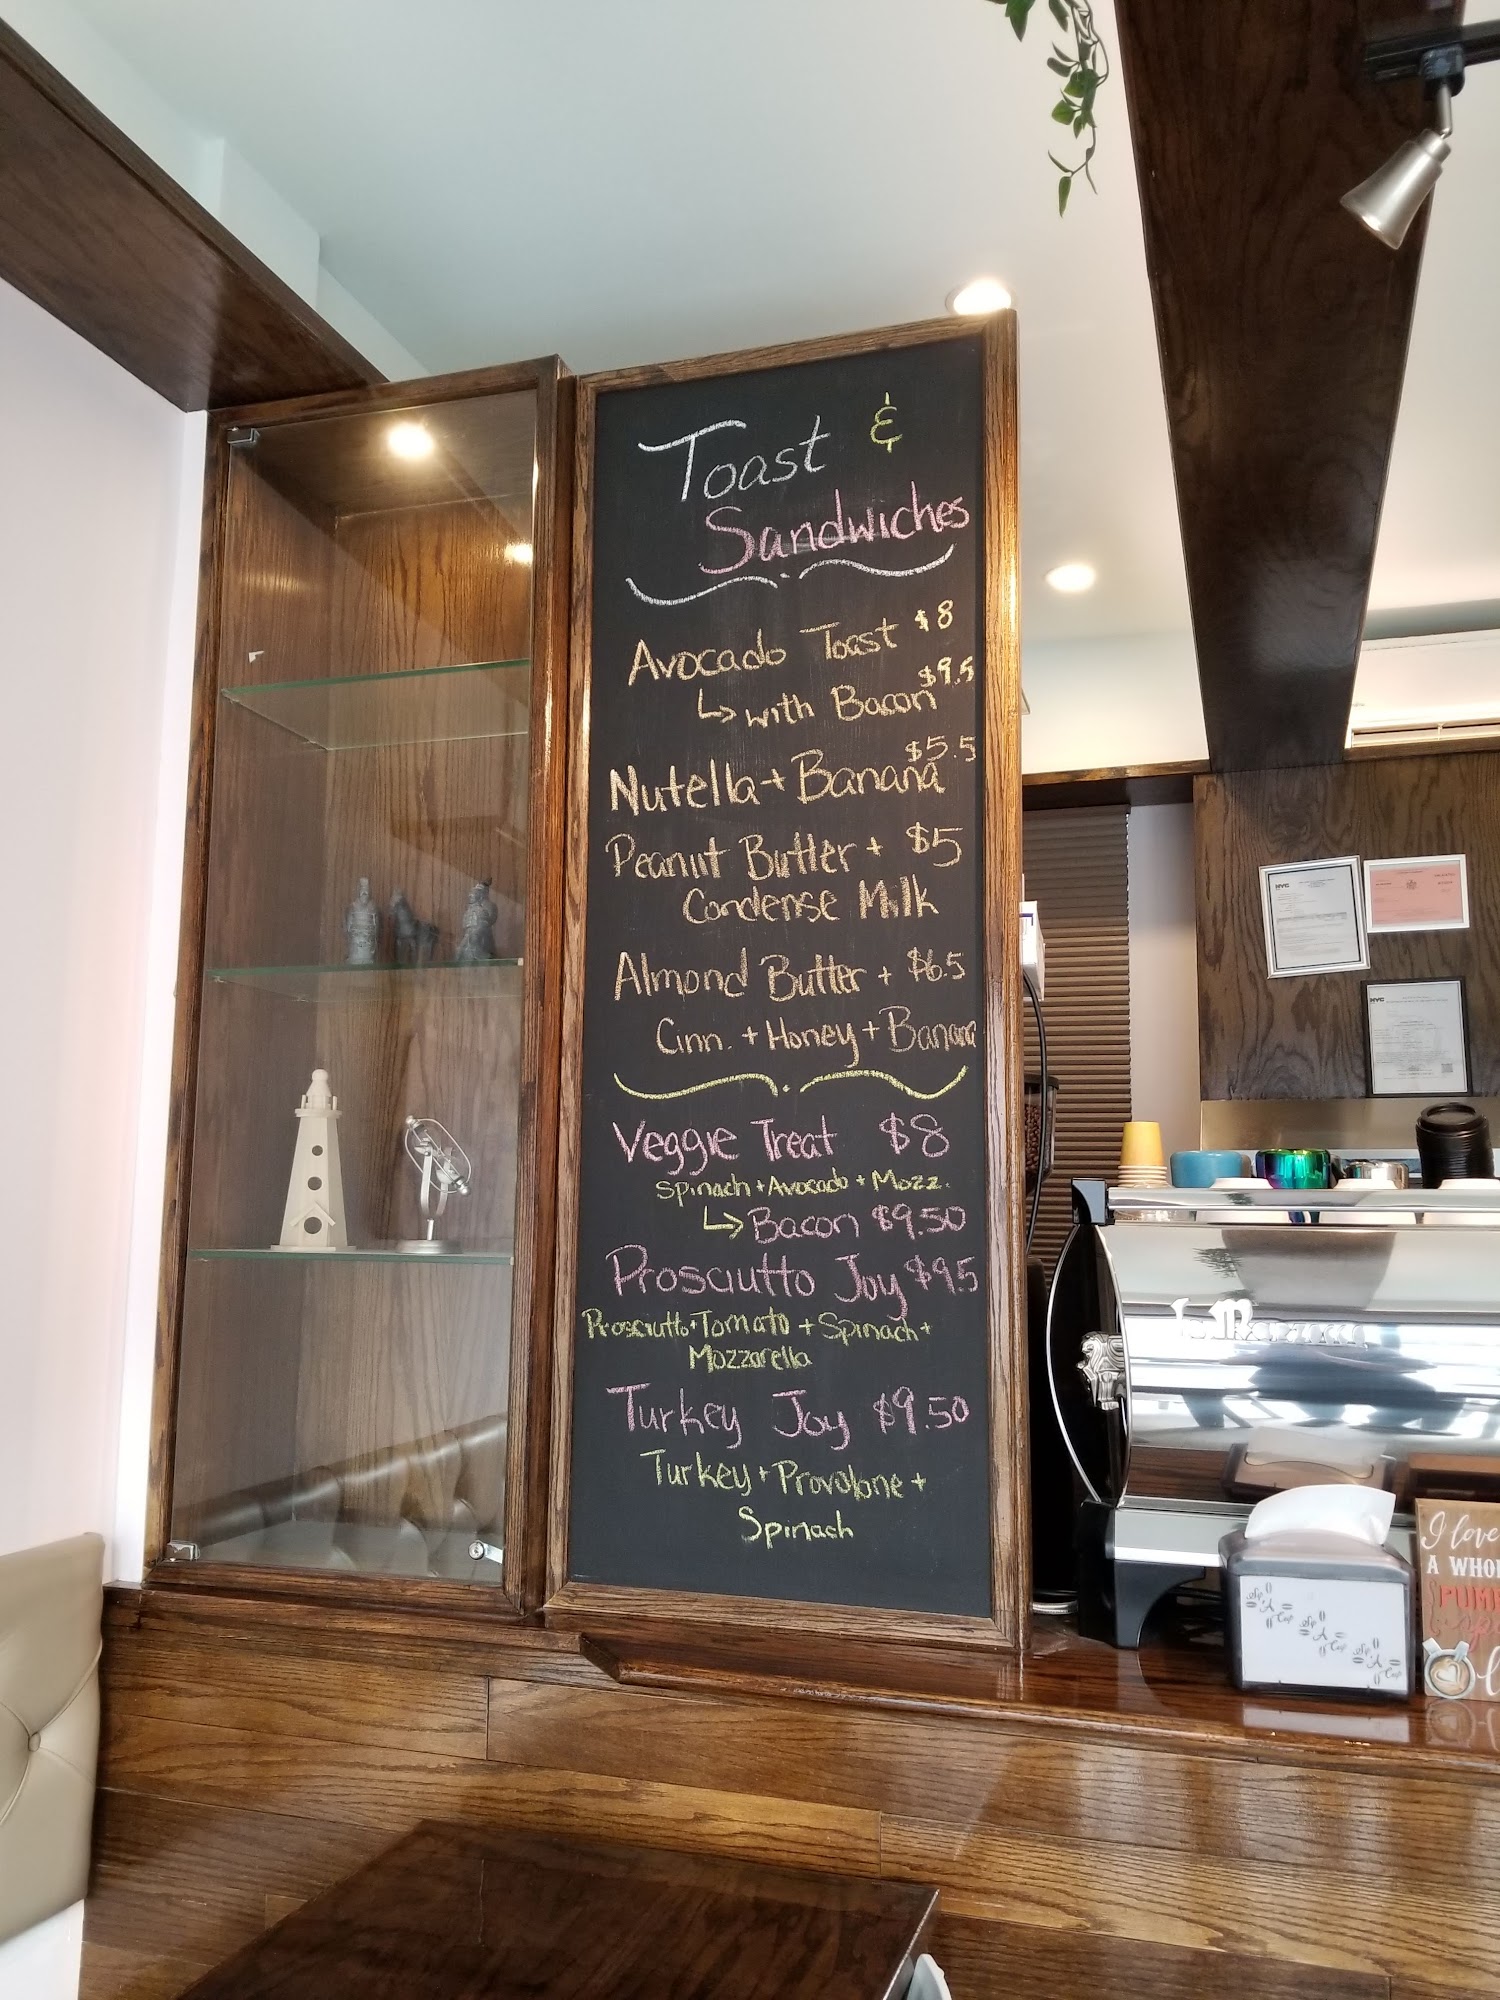 Toast &
Sandwiches
Avocado Toast $8
↳ with Bacon $9.5
Nutella + Banana $5.5
Peanut Butter + $5
Condense Milk
Almond Butter + $6.5
Cinn. + Honey + Banana
Veggie Treat $8
Spinach + Avocado + Mozz.
↳ Bacon $9.50
Prosciutto Joy $9.5
Prosciutto + Tomato + Spinach +
Mozzarella
Turkey Joy $9.50
Turkey + Provolone +
Spinach
NYC
NYC
La Marzocco
I love
A WHO
PUM
Sip
A
Cup
Sip
A
Cup
Sip
A
Cup